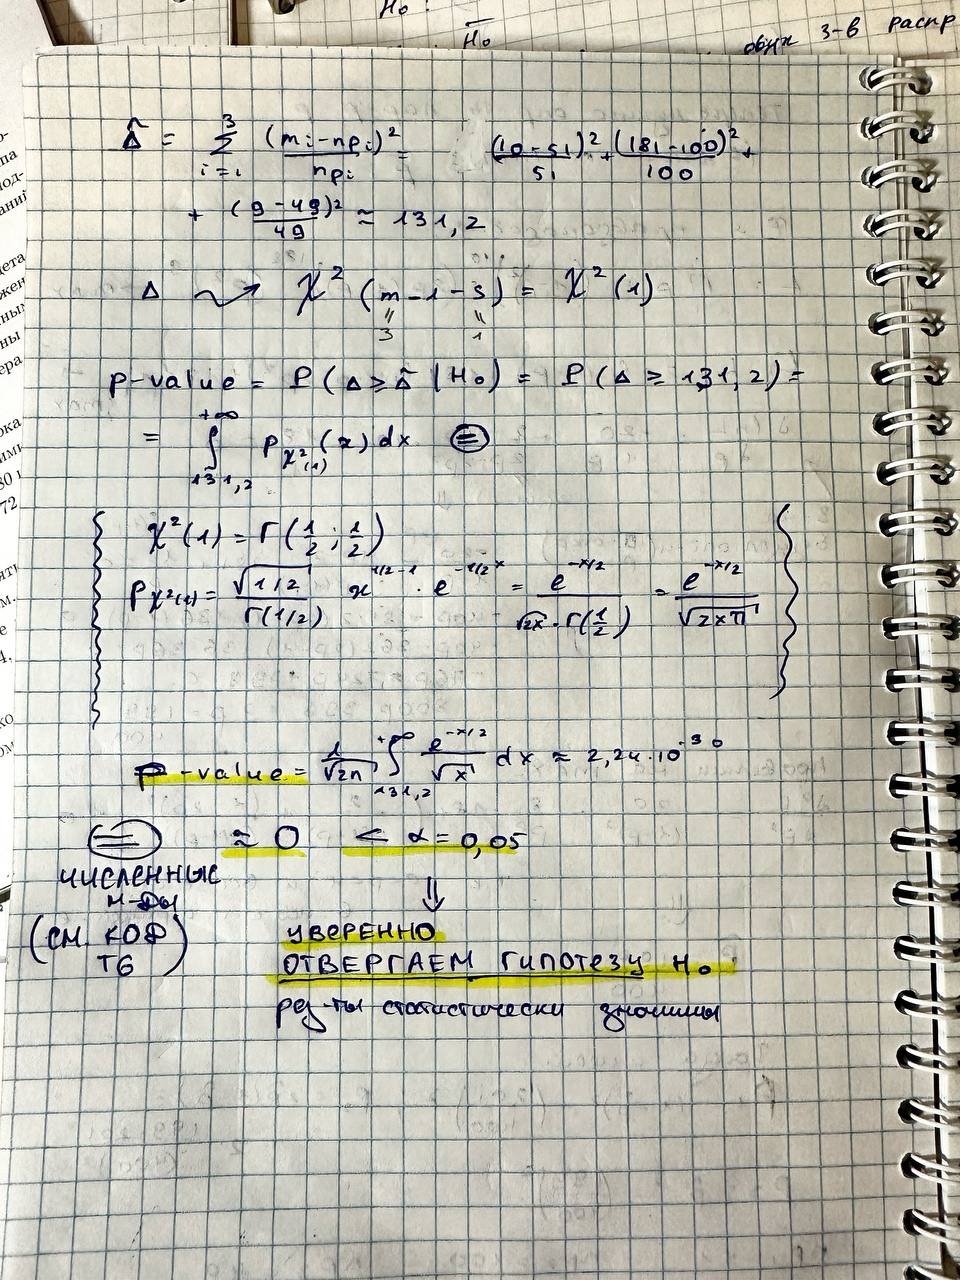 H₀ :
H̅₀
двух 3-в распр
Δ̂ = Σ_{i=1}^{3} (mᵢ - npᵢ)² / npᵢ = (10-51)²/51 + (181-100)²/100 +
+ (9-49)²/49 ≈ 131,2
Δ ⇝ χ² (m - 1 - s) = χ² (1)
" "
3 1
p-value = P (Δ ≥ Δ̂ | H₀) = P (Δ ≥ 131,2) =
= ∫_{131,2}^{+∞} p_{χ²(1)} (x) dx ⊜
χ²(1) = Γ(1/2 ; 1/2)
p_{χ²(1)} = √(1/2) / Γ(1/2) x^{1/2-1} · e^{-1/2 x} = e^{-x/2} / (√2x · Γ(1/2)) = e^{-x/2} / √(2xπ)
p-value = 1/√(2π) ∫_{131,2}^{+∞} e^{-x/2} / √x dx ≈ 2,24·10^{-30}
⊜ ≈ 0 < α = 0,05
численные
м-ды
(см. код
ТG)
⇓
уверенно
отвергаем гипотезу H₀
рез-ты статистически значимы